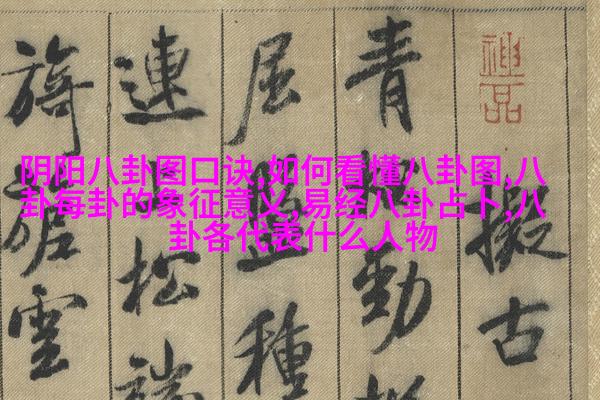 阴阳八卦图口诀,如何看懂八卦图,八
卦每卦的象征意义,易经八卦占卜,八
卦各代表什么人物
神品
擬古
青松勁
屈盤種
連上松端
旖旎雲